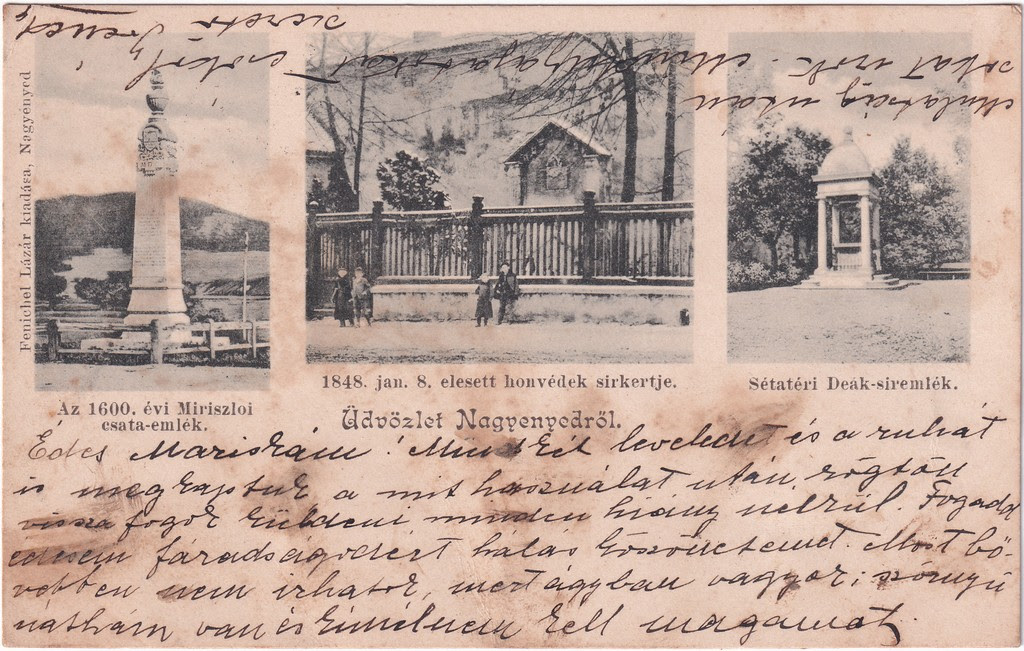 Fenichel Lázár kiadása, Nagyenyed
Az 1600. évi Miriszloi
csata-emlék.
1848. jan. 8. elesett honvédek sirkertje.
Sétatéri Deák-siremlék.
Üdvözlet Nagyenyedről.
Édes Mariskám! Mind két leveledet és a ruhát
is megkaptuk a mit használat után rögtön
vissza fogok küldeni minden hiány nélkül. Fogadd
édesem fáradságodért hálás köszönetemet. Most bő-
vebben nem irhatok, mert ágyban vagyok; szörnyű
náthám van és kimélnem kell magamat.
mulatság után
sokat
csókol
szerető Iréned